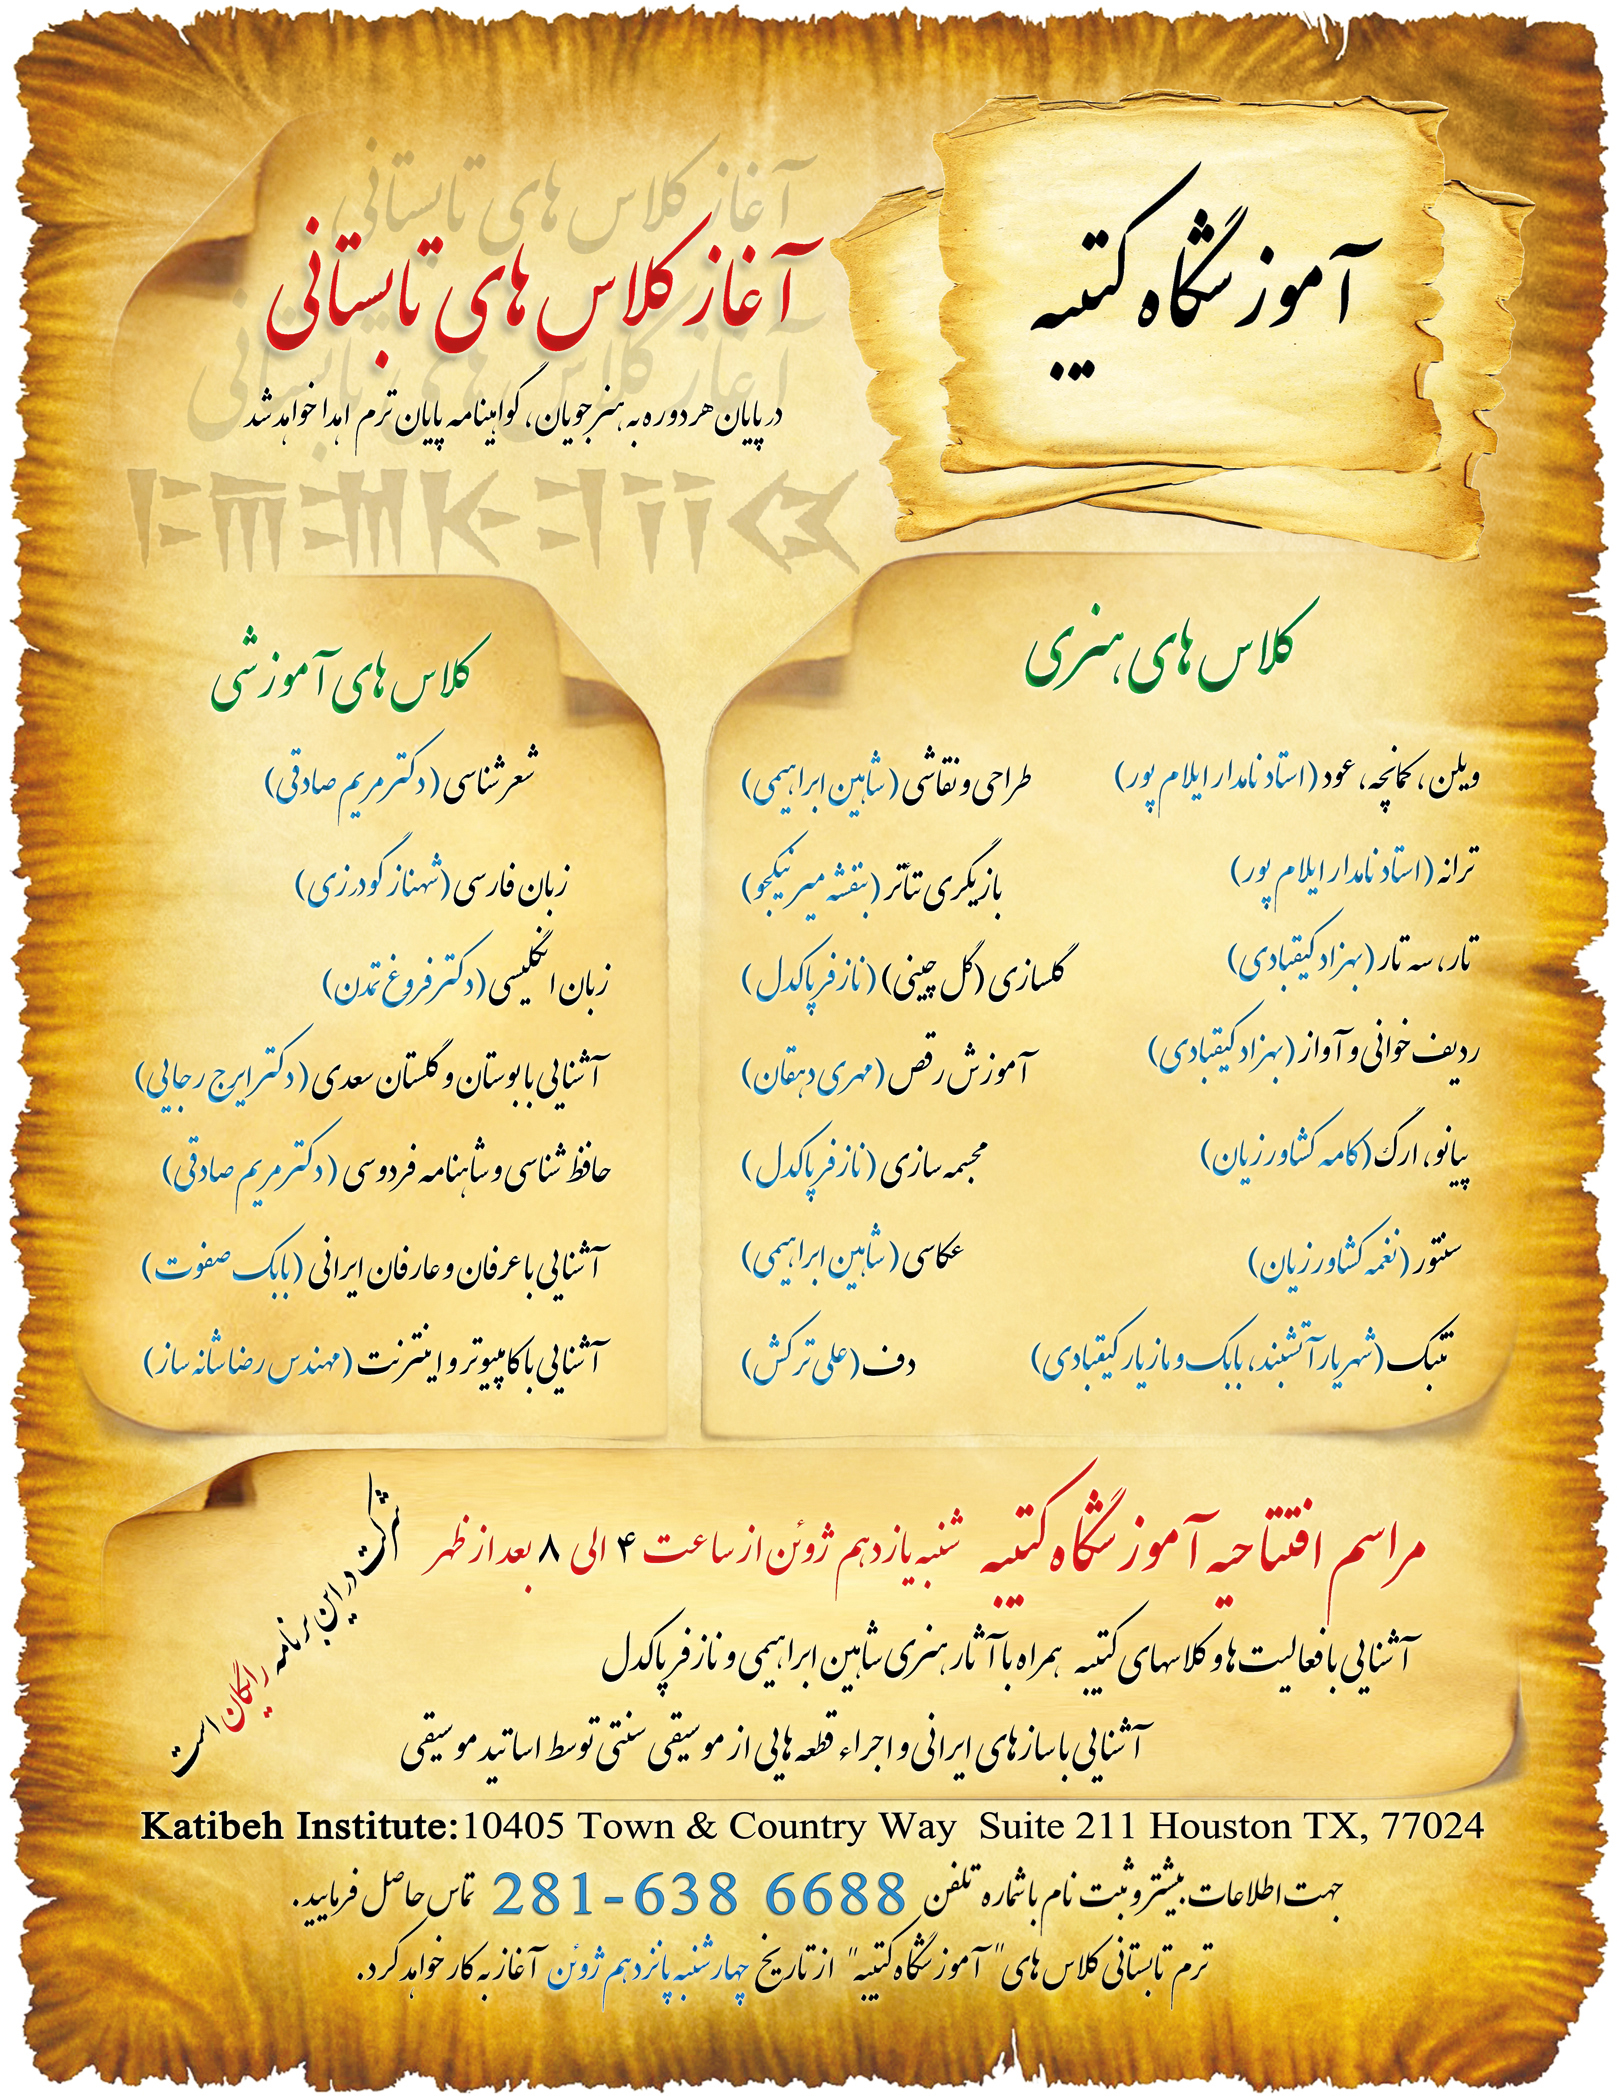 آموزشگاه کتیبه
آغاز کلاس های تابستانی
در پایان هر دوره به هنرجویان، گواهینامه پایان ترم اهدا خواهد شد
کلاس های هنری
ویلن، کمانچه، عود (استاد نامدار ایلام پور)
ترانه (استاد نامدار ایلام پور)
تار، سه تار (بهزاد کیقبادی)
ردیف خوانی و آواز (بهزاد کیقبادی)
پیانو، ارگ (کامه کشاورزیان)
سنتور (نغمه کشاورزیان)
تنبک (شهریار آتشبند، بابک و مازیار کیقبادی)
طراحی و نقاشی (شاهین ابراهیمی)
بازیگری تئاتر (بنفشه میر نیکجو)
گلسازی (گل چینی) (نازفر پاکدل)
آموزش رقص (مهری دهقان)
مجسمه سازی (نازفر پاکدل)
عکاسی (شاهین ابراهیمی)
دف (علی ترکش)
کلاس های آموزشی
شعر شناسی (دکتر مریم صادقی)
زبان فارسی (شهناز گودرزی)
زبان انگلیسی (دکتر فروغ تمدن)
آشنایی با بوستان و گلستان سعدی (دکتر ایرج رجایی)
حافظ شناسی و شاهنامه فردوسی (دکتر مریم صادقی)
آشنایی با عرفان و عارفان ایرانی (بابک صفوت)
آشنایی با کامپیوتر و اینترنت (مهندس رضا شانه ساز)
مراسم افتتاحیه آموزشگاه کتیبه شنبه یازدهم ژوئن از ساعت ۴ الی ۸ بعد از ظهر
آشنایی با فعالیت ها و کلاسهای کتیبه همراه با آثار هنری شاهین ابراهیمی و نازفر پاکدل
آشنایی با سازهای ایرانی و اجراء قطعه هایی از موسیقی سنتی توسط اساتید موسیقی
شرکت در این برنامه رایگان است
Katibeh Institute:10405 Town & Country Way Suite 211 Houston TX, 77024
جهت اطلاعات بیشتر و ثبت نام با شماره تلفن 281-638 6688 تماس حاصل فرمایید.
ترم تابستانی کلاس های "آموزشگاه کتیبه" از تاریخ چهارشنبه پانزدهم ژوئن آغاز به کار خواهد کرد.